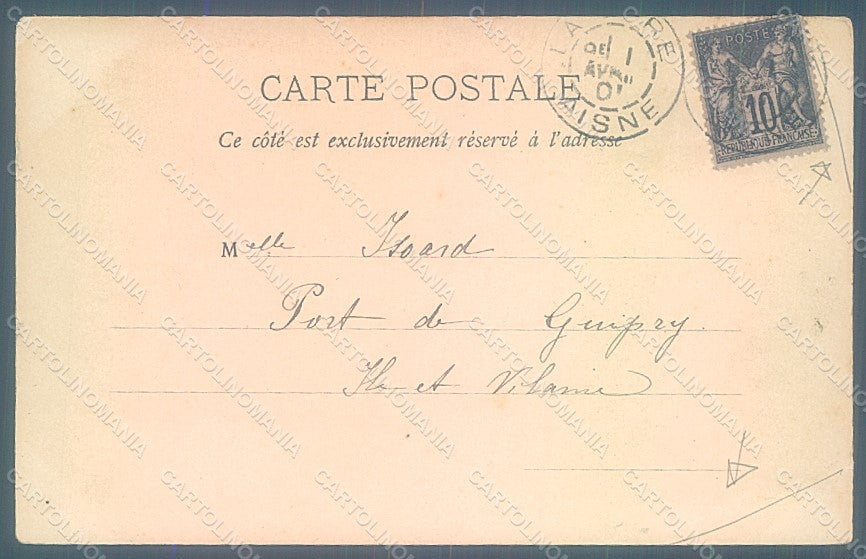 CARTE POSTALE
Ce côté est exclusivement réservé à l'adresse
LA FÈRE
1
AVRIL
01
AISNE
POSTES
10
REPUBLIQUE FRANÇAISE
Melle Isoard
Port de Guipry
Ile et Vilaine
CARTOLINOMANIA